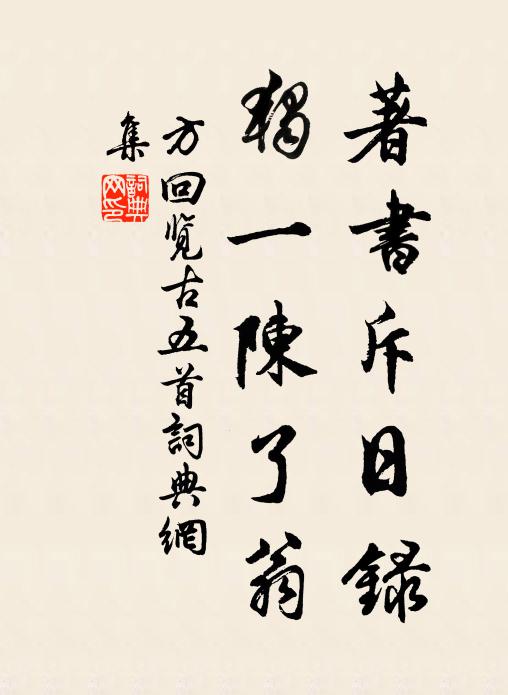 著書斥日錄
獨一陳了翁
方回覽古五首詞典網
集
詞典網印